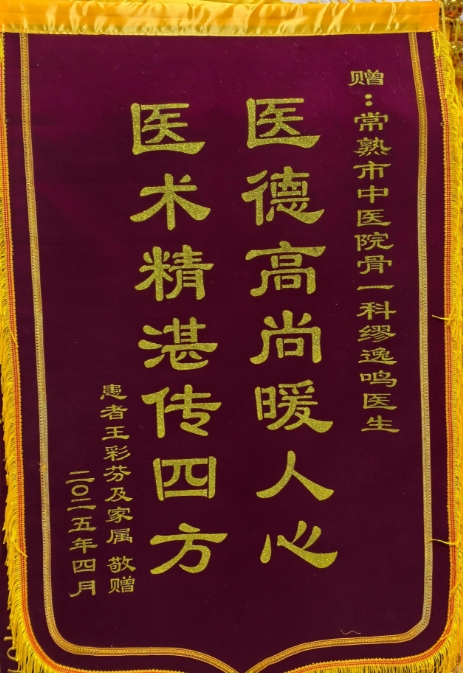 赠：常熟市中医院骨一科缪逸鸣医生
医德高尚暖人心
医术精湛传四方
患者王彩芬及家属 敬赠
二〇二五年四月